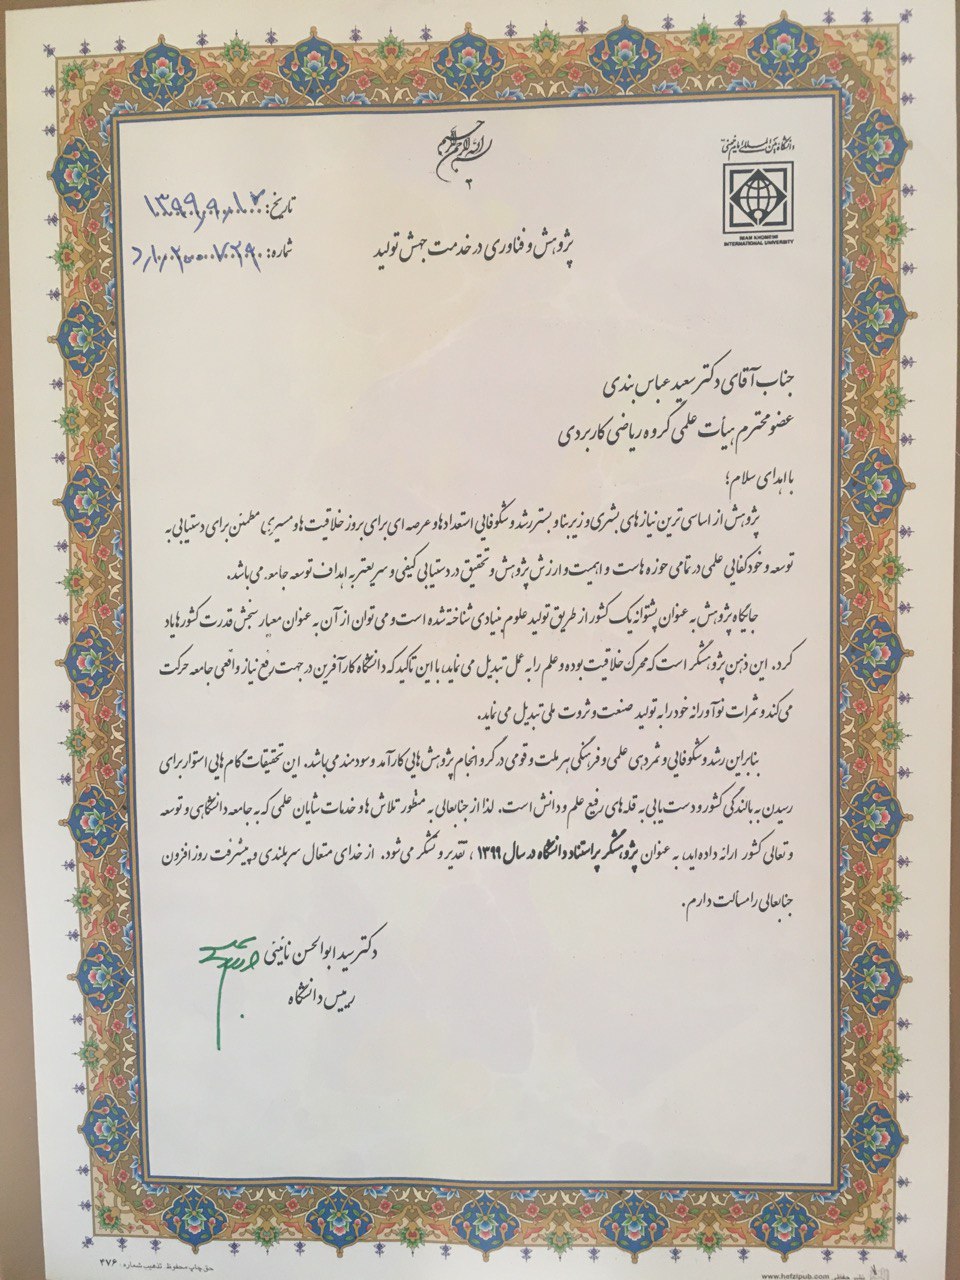 بسم الله الرحمن الرحیم
دانشگاه بین المللی امام خمینی
IMAM KHOMEINI
INTERNATIONAL UNIVERSITY
تاریخ:
شماره:
پژوهش و فناوری در خدمت جهش تولید
جناب آقای دکتر سعید عباس بندی
عضو محترم هیأت علمی گروه ریاضی کاربردی
با اهدای سلام؛
پژوهش از اساسی ترین نیازهای بشری و زیربنا و بستر رشد و شکوفایی استعدادها و عرصه ای برای بروز خلاقیت ها و مسیری مطمئن برای دستیابی به
توسعه و خودکفایی علمی در تمامی حوزه هاست و اهمیت و ارزش پژوهش و تحقیق در دستیابی کیفی و سریعتر به اهداف توسعه جامعه می باشد.
جایگاه پژوهش به عنوان پشتوانه یک کشور از طریق تولید علوم بنیادی شناخته شده است و می توان از آن به عنوان معیار سنجش قدرت کشورها یاد
کرد. این ذهن پژوهشگر است که محرک خلاقیت بوده و علم را به عمل تبدیل می نماید، با این تاکید که دانشگاه کارآفرین در جهت رفع نیاز واقعی جامعه حرکت
می کند و ثمرات نوآورانه خود را به تولید صنعت و ثروت ملی تبدیل می نماید.
بنابراین رشد و شکوفایی و ثمردهی علمی و فرهنگی هر ملت و قومی در گرو انجام پژوهش هایی کارآمد و سودمند می باشد. این تحقیقات گام هایی استوار برای
رسیدن به بالندگی کشور و دست یابی به قله های رفیع علم و دانش است. لذا از جنابعالی به منظور تلاش ها و خدمات شایان علمی که به جامعه دانشگاهی و توسعه
و تعالی کشور ارائه داده اید، به عنوان پژوهشگر پراستناد دانشگاه در سال ۱۳۹۹، تقدیر و تشکر می شود. از خدای متعال سربلندی و پیشرفت روزافزون
جنابعالی را مسألت دارم.
دکتر سید ابوالحسن نائینی
رییس دانشگاه
حق چاپ محفوظ. تذهیب شماره ۴۷۶
www.hefzipub.com